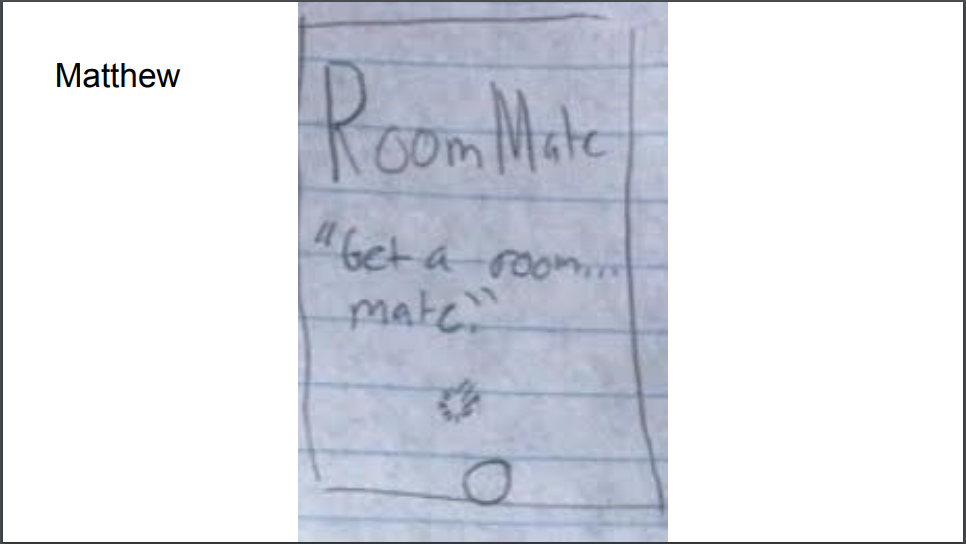 Matthew
RoomMate
"Get a room...
mate."